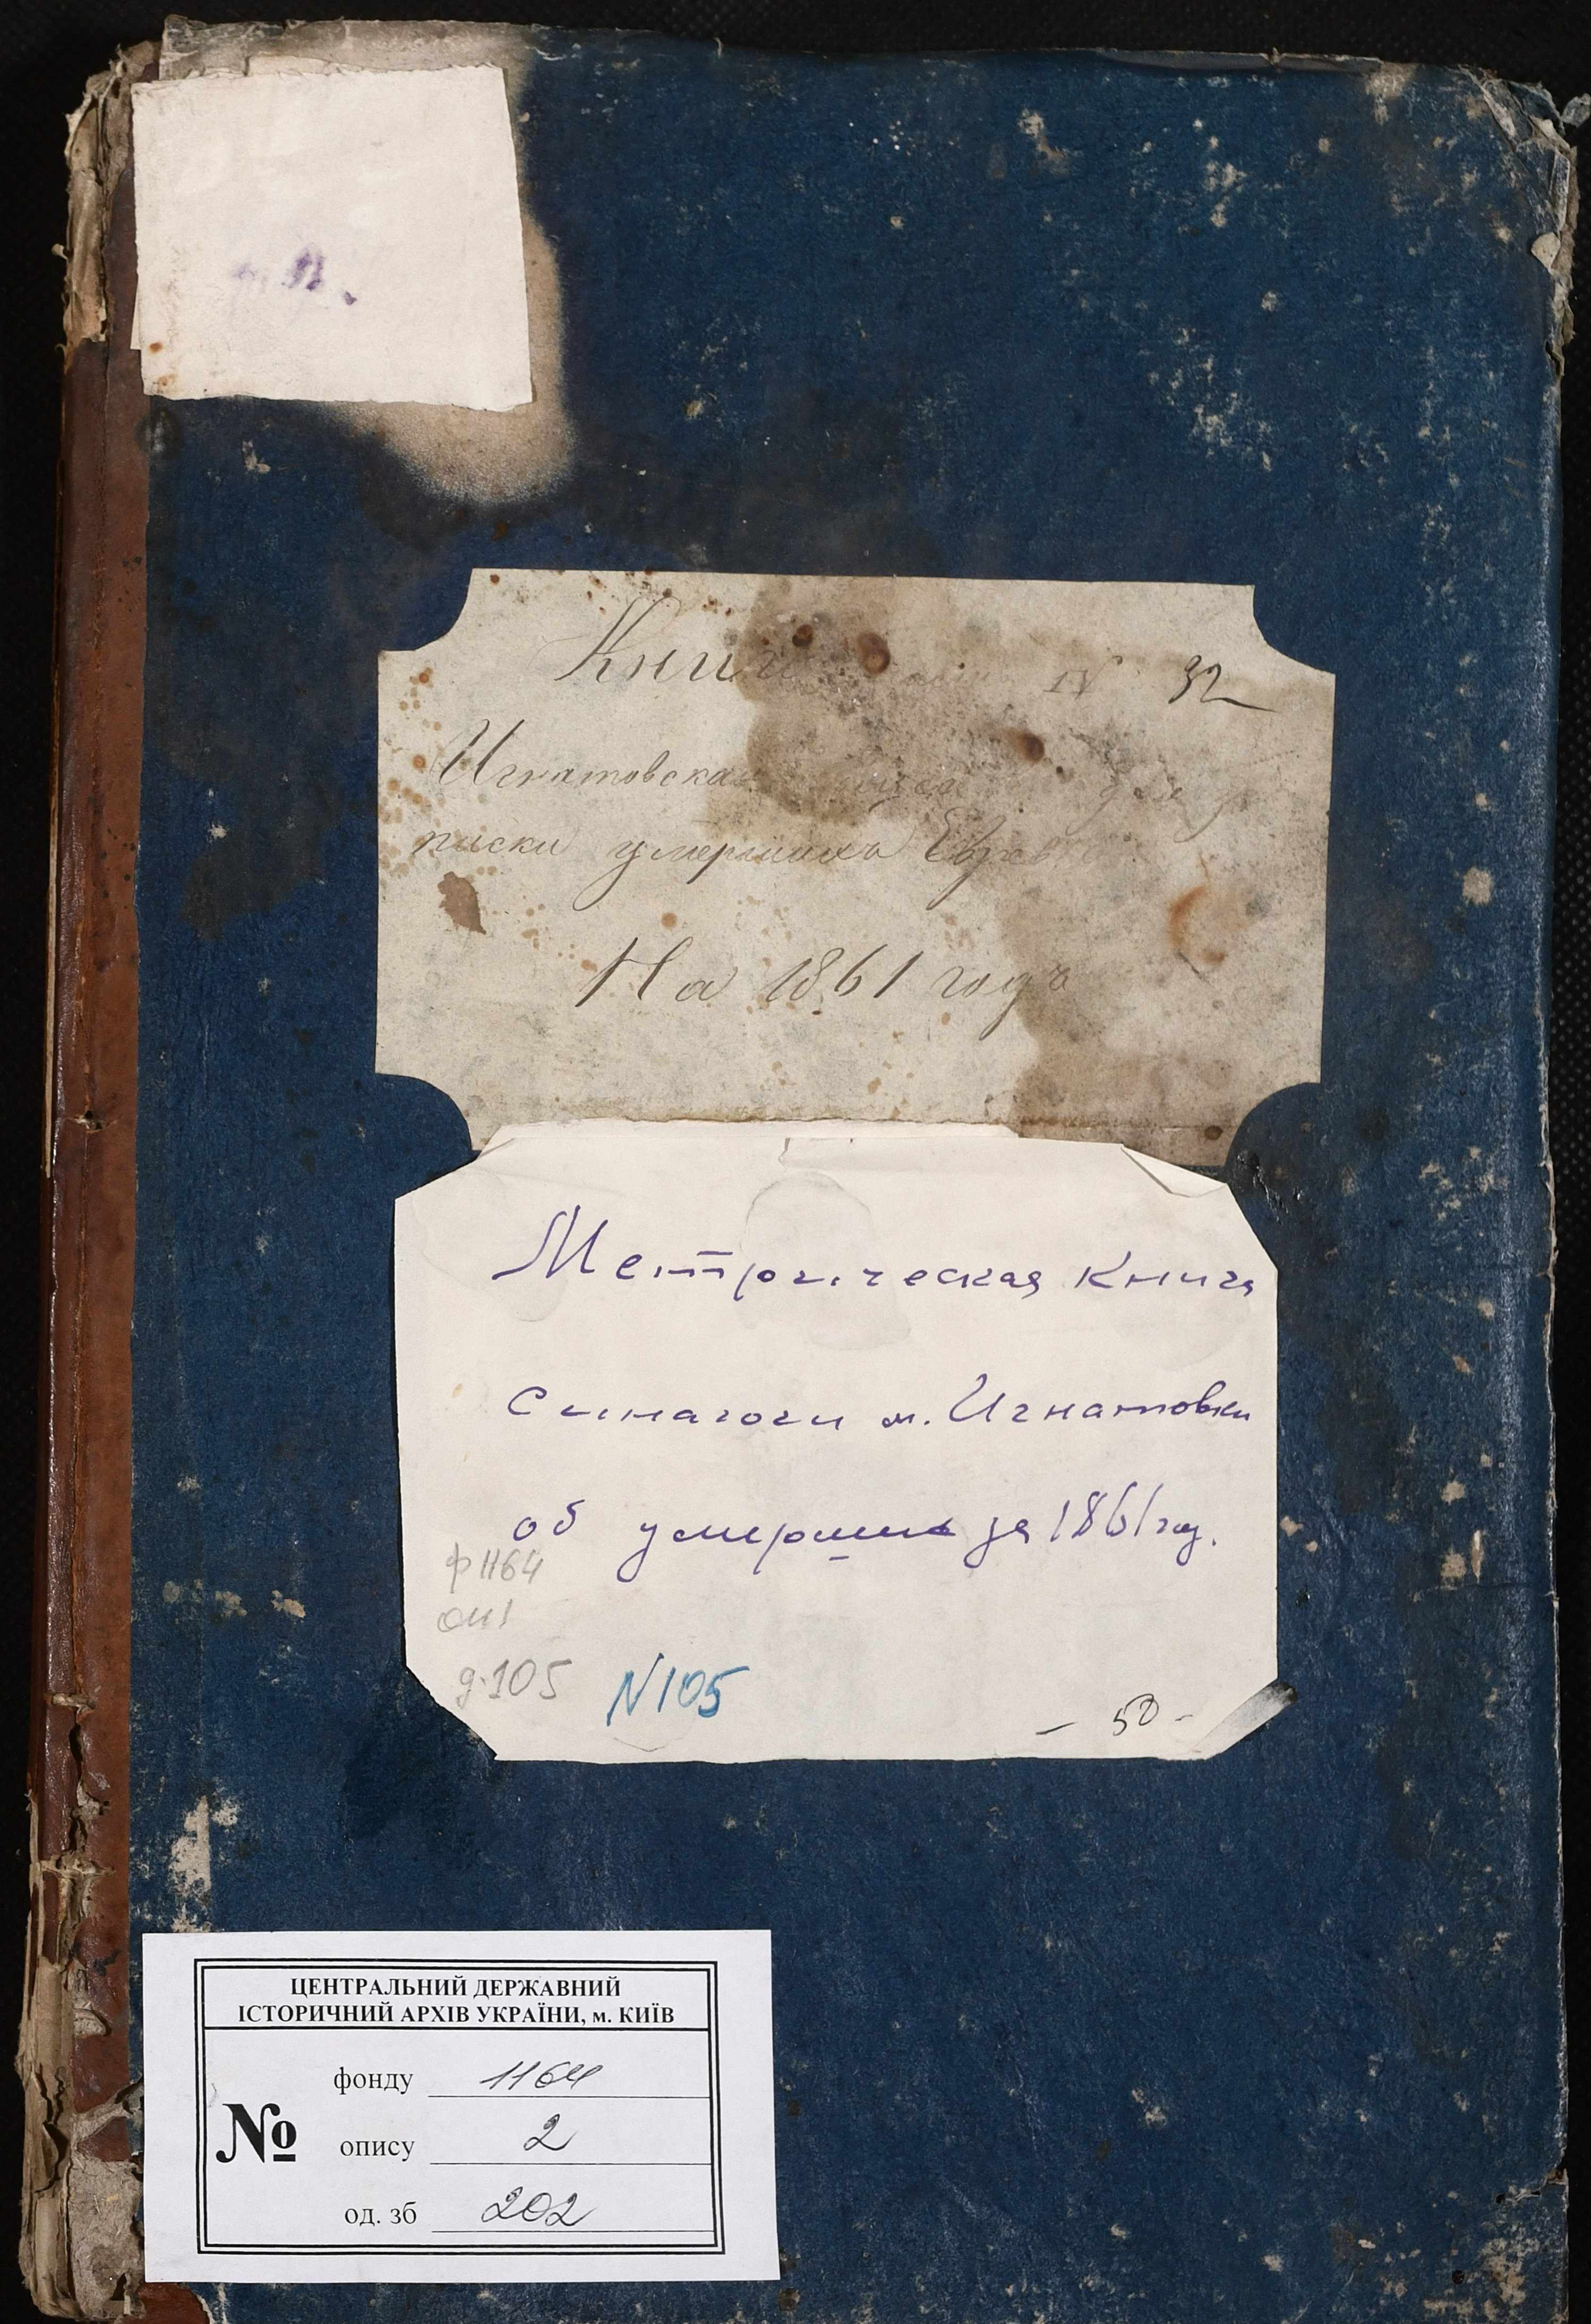 Книга IV 32
Игнатовская для за
писки умершихъ Евреевъ
На 1861 годъ
Метрическая книга
Синагоги м. Игнатовки
об умерших за 1861 год.
ф 1164
оп 1
д. 105 N 105
- 50 -
ЦЕНТРАЛЬНИЙ ДЕРЖАВНИЙ
ІСТОРИЧНИЙ АРХІВ УКРАЇНИ, м. КИЇВ
№
фонду 1164
опису 2
од. зб 202